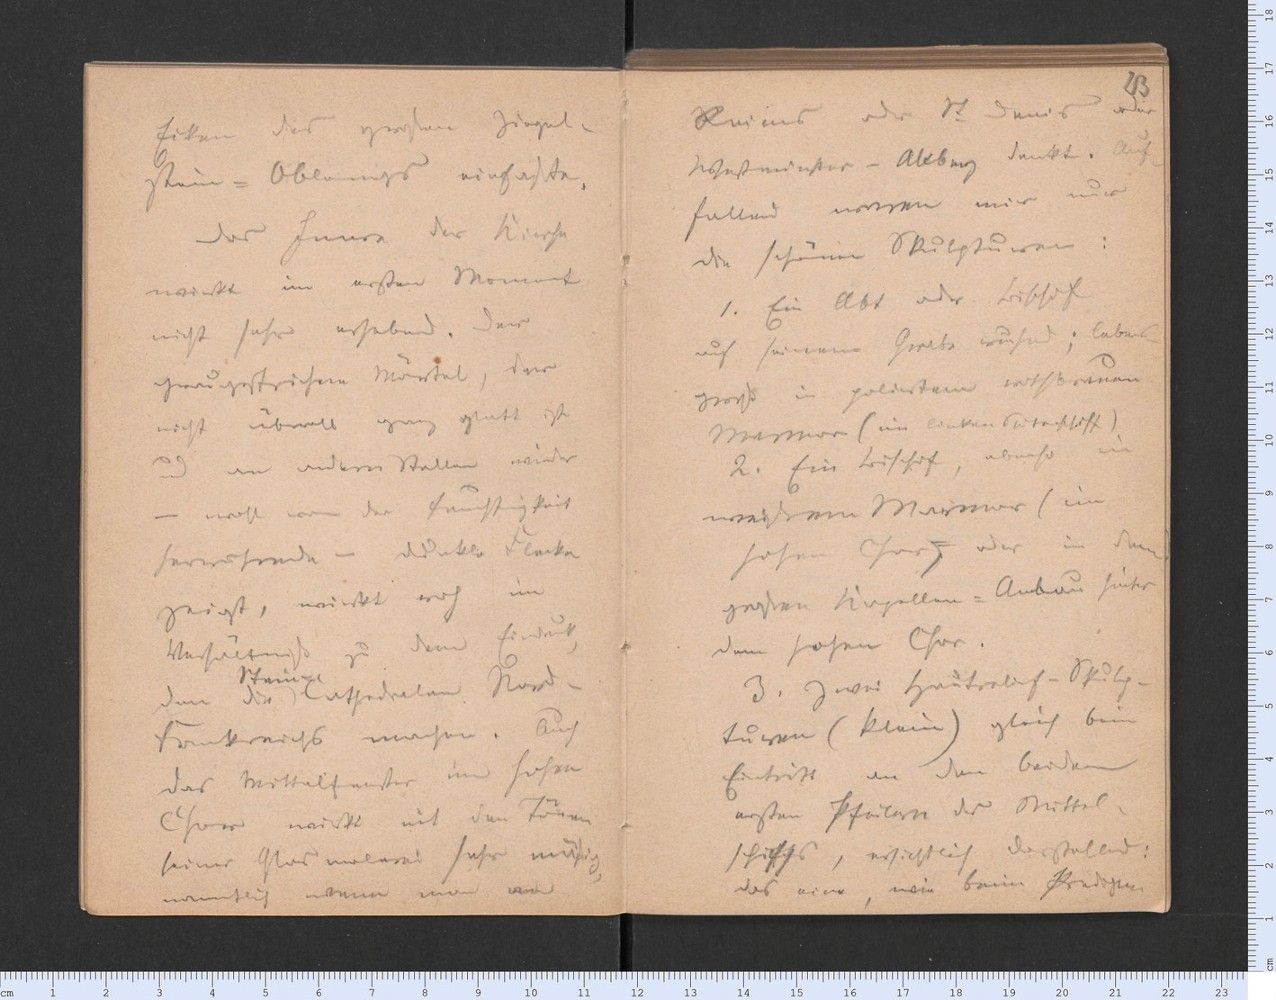 Ecken des großen Ziegel-
stein-Oblongs einfaßte.
Das Innre der Kirche
wirkt im ersten Moment
nicht sehr erhebend. Der
graugestrichene Mörtel, der
nicht überall ganz glatt ist
und an andern Stellen wieder
— wohl von der Feuchtigkeit
herrührende — dunkle Flecke
zeigt, wirkt roh im
Verhältniß zu dem Eindruck,
den die Stein-Cathedralen Nord-
Frankreichs machen. Auch
das Mittelfenster im hohen
Chor wirkt mit den Tönen
seiner Glasmalerei sehr mäßig,
namentlich wenn man an
23
Reims oder St Denis oder
Westminster-Abbey denkt. Auf-
fallend waren mir nur
die schönen Skulpturen:
1. Ein Abt oder Bischof
auf seinem Grabe ruhend; lebens-
groß in poliertem rothbraunen
Marmor (im linken Seitenschiff)
2. Ein Bischof, ebenso in
weißem Marmor (im
hohen Chor) oder in dem
großen Kapellen-Anbau hinter
dem hohen Chor.
3. Zwei Hautrelief-Skulp-
turen (klein) gleich beim
Eintritt an den beiden
ersten Pfeilern des Mittel-
schiffs, ersichtlich darstellend:
das eine, wie beim Predigen